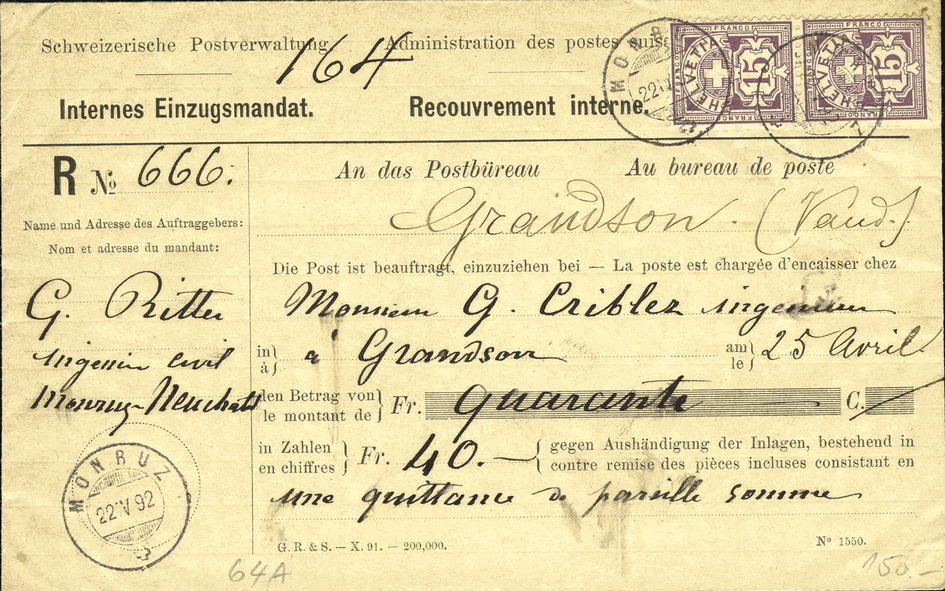 Schweizerische Postverwaltung. Administration des postes suisses
164
FRANCO FRANCO
HELVETIA 15 HELVETIA 15
FRANCO FRANCO
MONRUZ
Internes Einzugsmandat. Recouvrement interne.
R No 666.
An das Postbüreau Au bureau de poste
Grandson. (Vaud.)
Name und Adresse des Auftraggebers:
Nom et adresse du mandant:
G. Ritter
ingénieur civil
Monruz-Neuchatel
Die Post ist beauftragt, einzuziehen bei — La poste est chargée d'encaisser chez
Monsieur G. Criblez ingenieur
in } à Grandson am } 25 Avril
à } le }
den Betrag von } Fr. quarante C.
le montant de }
in Zahlen } Fr. 40.— { gegen Aushändigung der Inlagen, bestehend in
en chiffres } { contre remise des pièces incluses consistant en
une quittance de pareille somme
MONRUZ
22 V 92
G. R. & S. — X. 91. — 200,000. No 1550.
64A 150.—